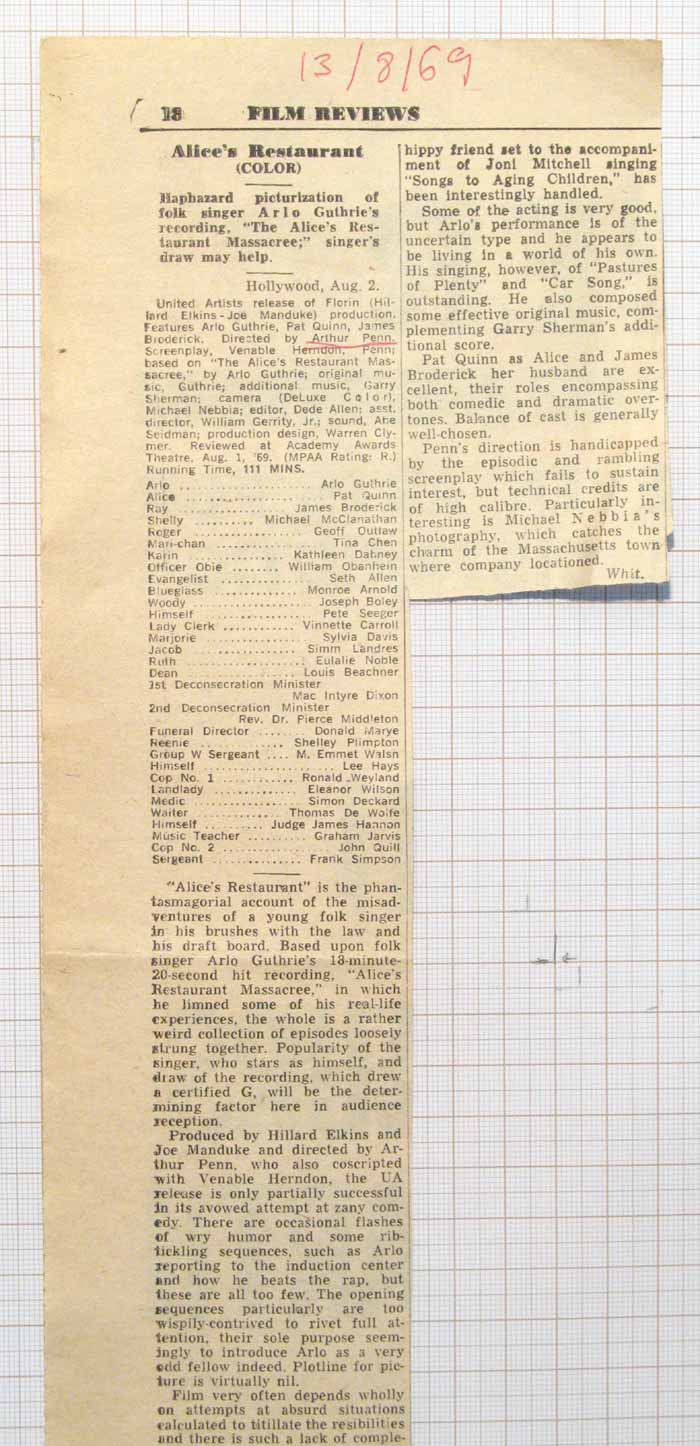 13/8/69
18 FILM REVIEWS
Alice's Restaurant
(COLOR)
Haphazard picturization of
folk singer Arlo Guthrie's
recording, "The Alice's Res-
taurant Massacree;" singer's
draw may help.
Hollywood, Aug. 2.
United Artists release of Florin (Hil-
lard Elkins-Joe Manduke) production.
Features Arlo Guthrie, Pat Quinn, James
Broderick. Directed by Arthur Penn.
Screenplay, Venable Herndon, Penn;
based on "The Alice's Restaurant Mas-
sacree," by Arlo Guthrie; original mu-
sic, Guthrie; additional music, Garry
Sherman; camera (DeLuxe Color),
Michael Nebbia; editor, Dede Allen; asst.
director, William Gerrity, Jr.; sound, Abe
Seidman; production design, Warren Cly-
mer. Reviewed at Academy Awards
Theatre, Aug. 1, '69. (MPAA Rating: R.)
Running Time, 111 MINS.
Arlo ...................... Arlo Guthrie
Alice ...................... Pat Quinn
Ray ...................... James Broderick
Shelly ......... Michael McClanathan
Roger ................ Geoff Outlaw
Mari-chan ................ Tina Chen
Karin .............. Kathleen Dabney
Officer Obie ........ William Obanhein
Evangelist .............. Seth Allen
Blueglass ............ Monroe Arnold
Woody .................. Joseph Boley
Himself .................. Pete Seeger
Lady Clerk ............ Vinnette Carroll
Marjorie ................ Sylvia Davis
Jacob .................. Simm Landres
Ruth .................. Eulalie Noble
Dean .................. Louis Beachner
1st Deconsecration Minister
Mac Intyre Dixon
2nd Deconsecration Minister
Rev. Dr. Pierce Middleton
Funeral Director ........ Donald Marye
Reenie .............. Shelley Plimpton
Group W Sergeant .... M. Emmet Walsh
Himself ...................... Lee Hays
Cop No. 1 ............ Ronald Weyland
Landlady .............. Eleanor Wilson
Medic ................ Simon Deckard
Waiter ............ Thomas De Wolfe
Himself ......... Judge James Hannon
Music Teacher .......... Graham Jarvis
Cop No. 2 .................. John Quill
Sergeant .............. Frank Simpson
"Alice's Restaurant" is the phan-
tasmagorial account of the misad-
ventures of a young folk singer
in his brushes with the law and
his draft board. Based upon folk
singer Arlo Guthrie's 18-minute-
20-second hit recording, "Alice's
Restaurant Massacree," in which
he limned some of his real-life
experiences, the whole is a rather
weird collection of episodes loosely
strung together. Popularity of the
singer, who stars as himself, and
draw of the recording, which drew
a certified G, will be the deter-
mining factor here in audience
reception.
Produced by Hillard Elkins and
Joe Manduke and directed by Ar-
thur Penn, who also coscripted
with Venable Herndon, the UA
release is only partially successful
in its avowed attempt at zany com-
edy. There are occasional flashes
of wry humor and some rib-
tickling sequences, such as Arlo
reporting to the induction center
and how he beats the rap, but
these are all too few. The opening
sequences particularly are too
wispily-contrived to rivet full at-
tention, their sole purpose seem-
ingly to introduce Arlo as a very
odd fellow indeed. Plotline for pic-
ture is virtually nil.
Film very often depends wholly
on attempts at absurd situations
calculated to titillate the resibilities
and there is such a lack of comple-
hippy friend set to the accompani-
ment of Joni Mitchell singing
"Songs to Aging Children," has
been interestingly handled.
Some of the acting is very good,
but Arlo's performance is of the
uncertain type and he appears to
be living in a world of his own.
His singing, however, of "Pastures
of Plenty" and "Car Song," is
outstanding. He also composed
some effective original music, com-
plementing Garry Sherman's addi-
tional score.
Pat Quinn as Alice and James
Broderick her husband are ex-
cellent, their roles encompassing
both comedic and dramatic over-
tones. Balance of cast is generally
well-chosen.
Penn's direction is handicapped
by the episodic and rambling
screenplay which fails to sustain
interest, but technical credits are
of high calibre. Particularly in-
teresting is Michael Nebbia's
photography, which catches the
charm of the Massachusetts town
where company locationed.
Whit.